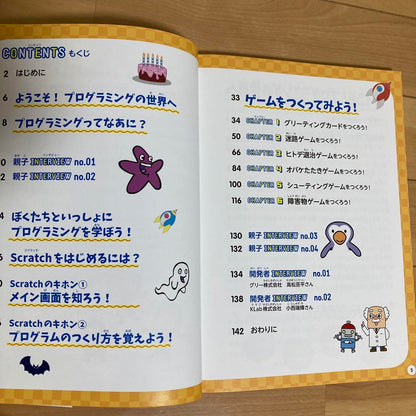 CONTENTS もくじ
2 はじめに
6 ようこそ！プログラミングの世界へ
8 プログラミングってなあに？
0 親子INTERVIEW no.01
2 親子INTERVIEW no.02
4 ぼくたちといっしょに
プログラミングを学ぼう！
6 Scratchをはじめるには？
0 Scratchのキホン①
メイン画面を知ろう！
6 Scratchのキホン②
プログラムのつくり方を覚えよう！
33 ゲームをつくってみよう！
34 CHAPTER 1 グリーティングカードをつくろう！
50 CHAPTER 2 迷路ゲームをつくろう！
66 CHAPTER 3 ヒトデ退治ゲームをつくろう！
84 CHAPTER 4 オバケたたきゲームをつくろう！
100 CHAPTER 5 シューティングゲームをつくろう！
116 CHAPTER 6 障害物ゲームをつくろう！
130 親子INTERVIEW no.03
132 親子INTERVIEW no.04
134 開発者INTERVIEW no.01
グリー株式会社 高松亜平さん
138 開発者INTERVIEW no.02
KLab株式会社
142 おわりに
5